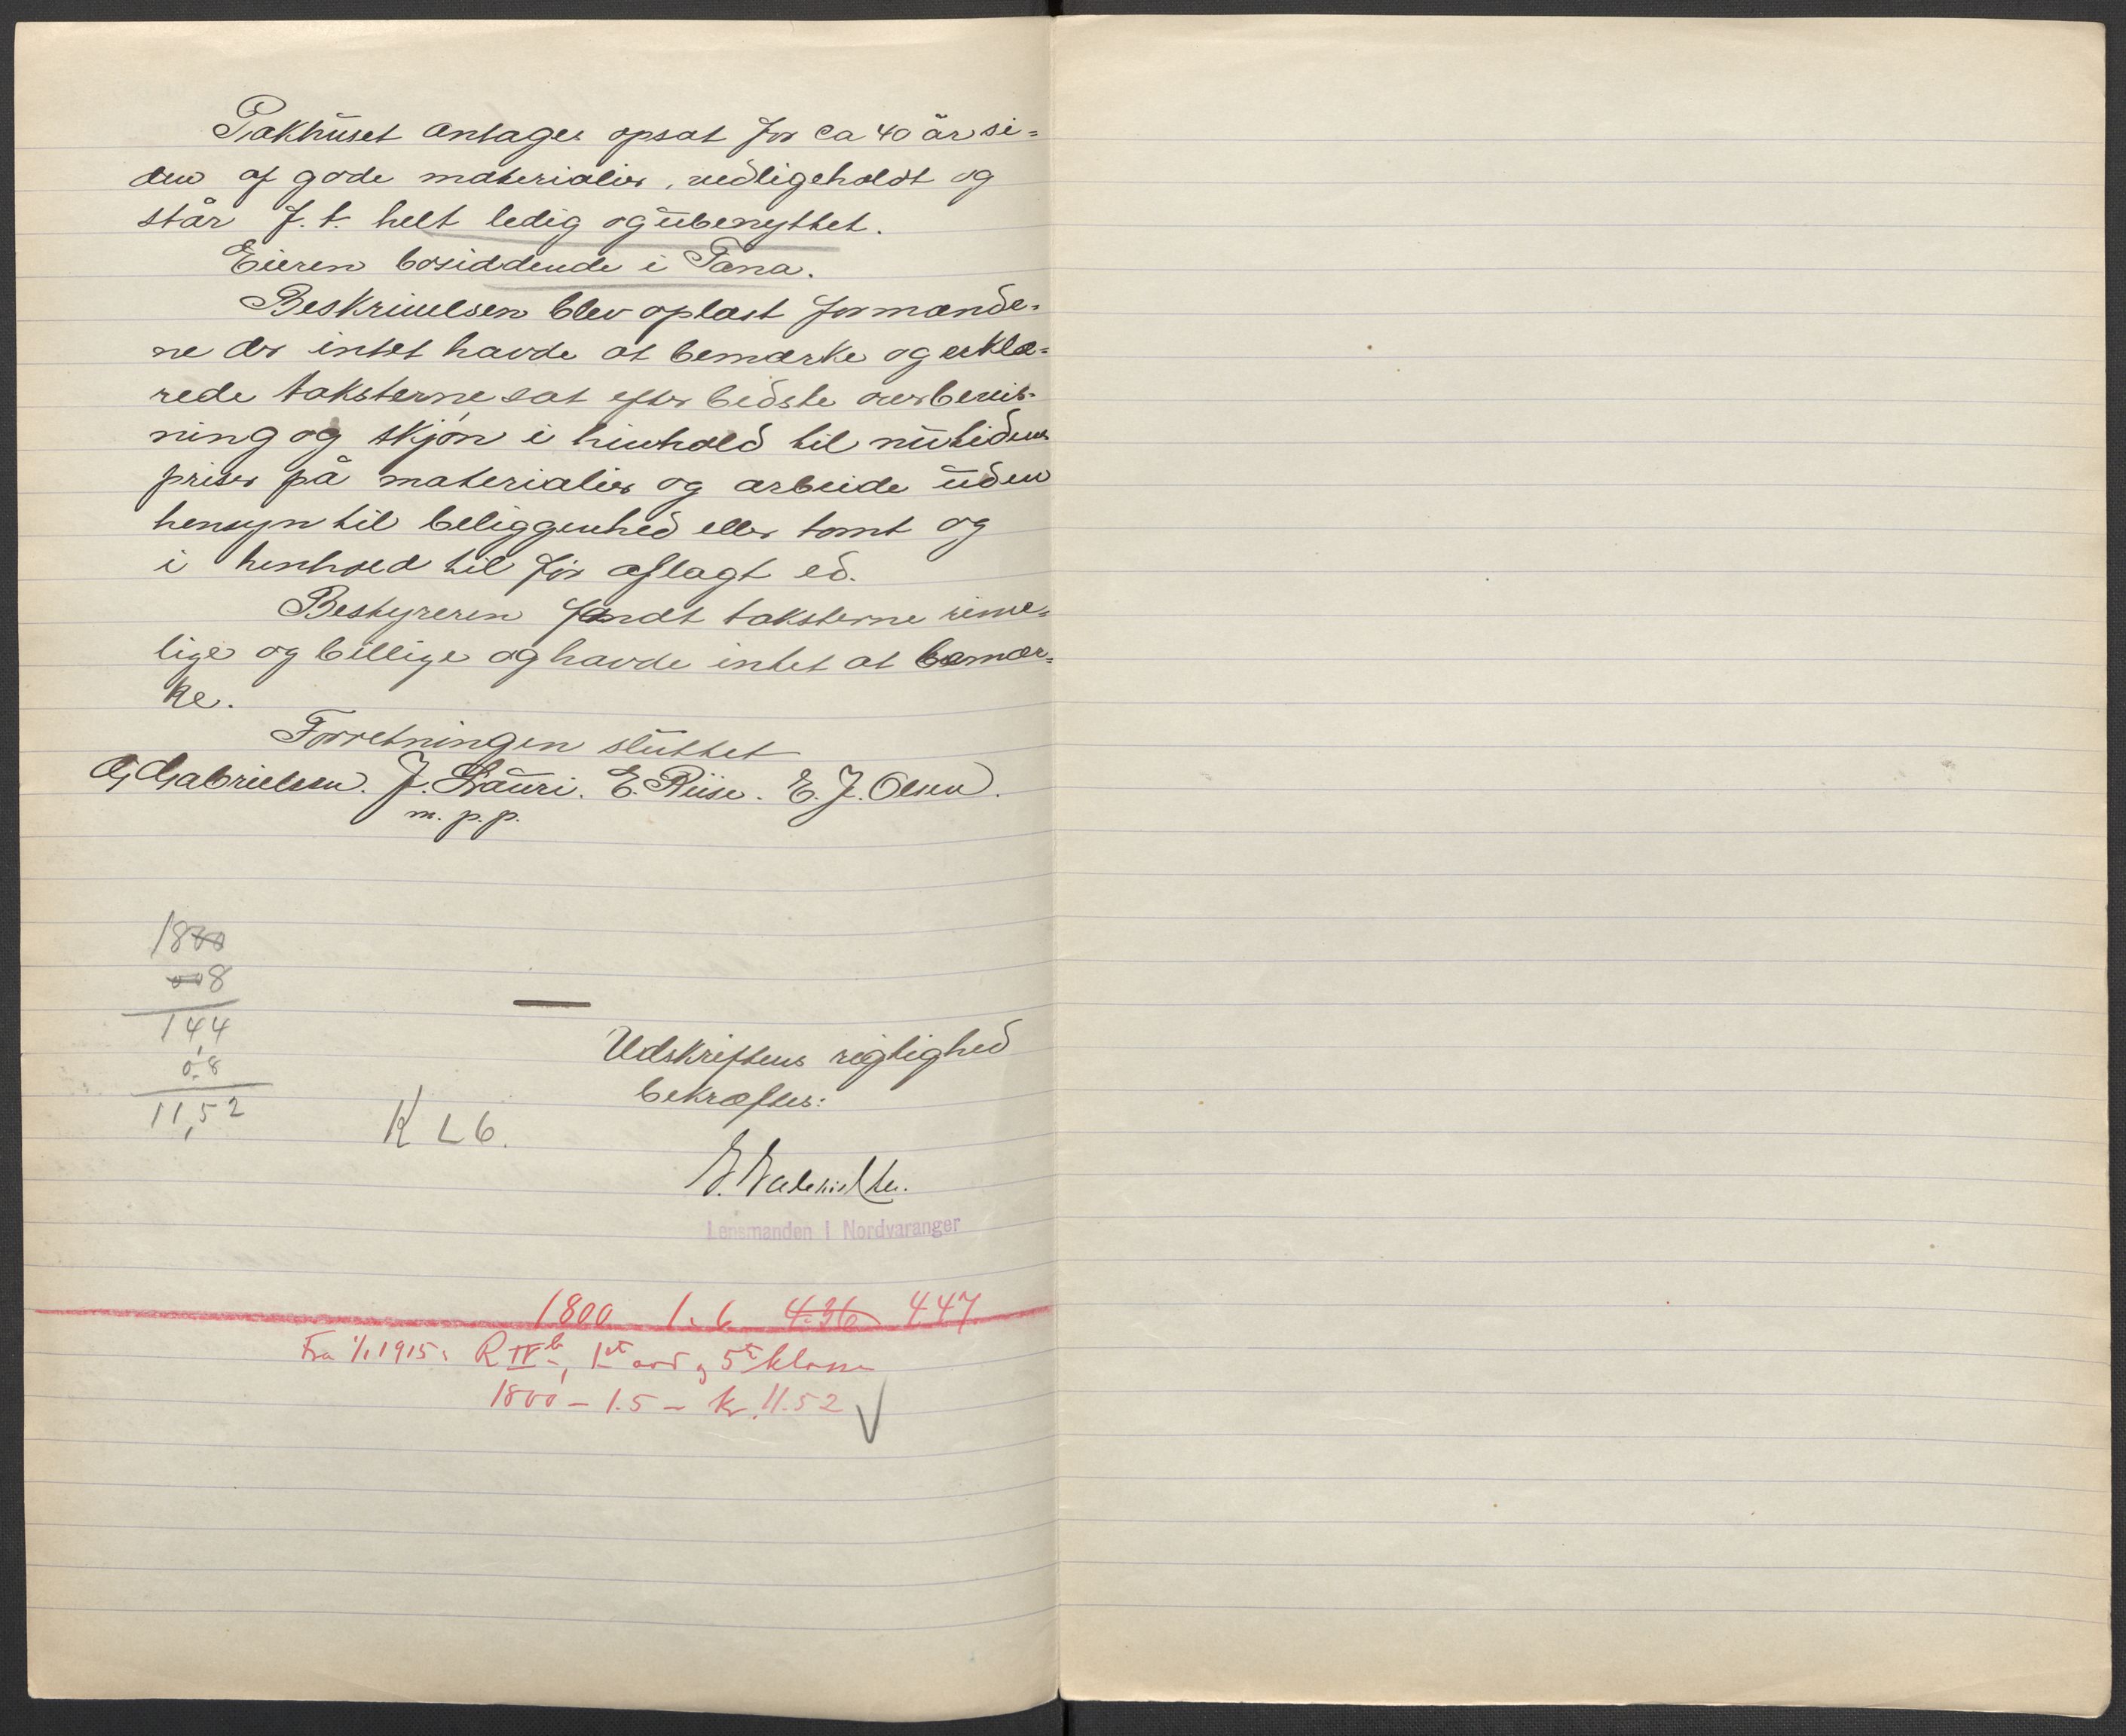 Pakhuset antages opsat for ca 40 år si=
den af gode materialier, vedligeholdt og
står f. t. helt ledig og ubenyttet.
Eieren bosiddende i Tana.
Beskrivelsen blev oplæst for mænde=
ne der intet havde at bemærke og erklæ=
rede taksterne sat efter bedste overbevis=
ning og skjøn i henhold til nutidens
priser på materialier og arbeide uden
hensyn til beliggenhed eller tomt og
i henhold til før aflagt ed.
Bestyreren fandt taksterne rime=
lige og billige og havde intet at bemær=
ke.
Forretningen sluttet
G. Gabrielsen. J. Lauri. E. Riise. E. J. Olsen.
m. p. p.
1800
008
14,4
0.8
11,52
K L 6.
Udskriftens rigtighed
bekræftes:
G. Gabrielsen.
Lensmanden i Nordvaranger
1800 1. 6 4.36 4.47
Fra 1/1 1915: R IV b, 1st ord, 5te klasse
1800 - 1.5 - kr. 11.52 √